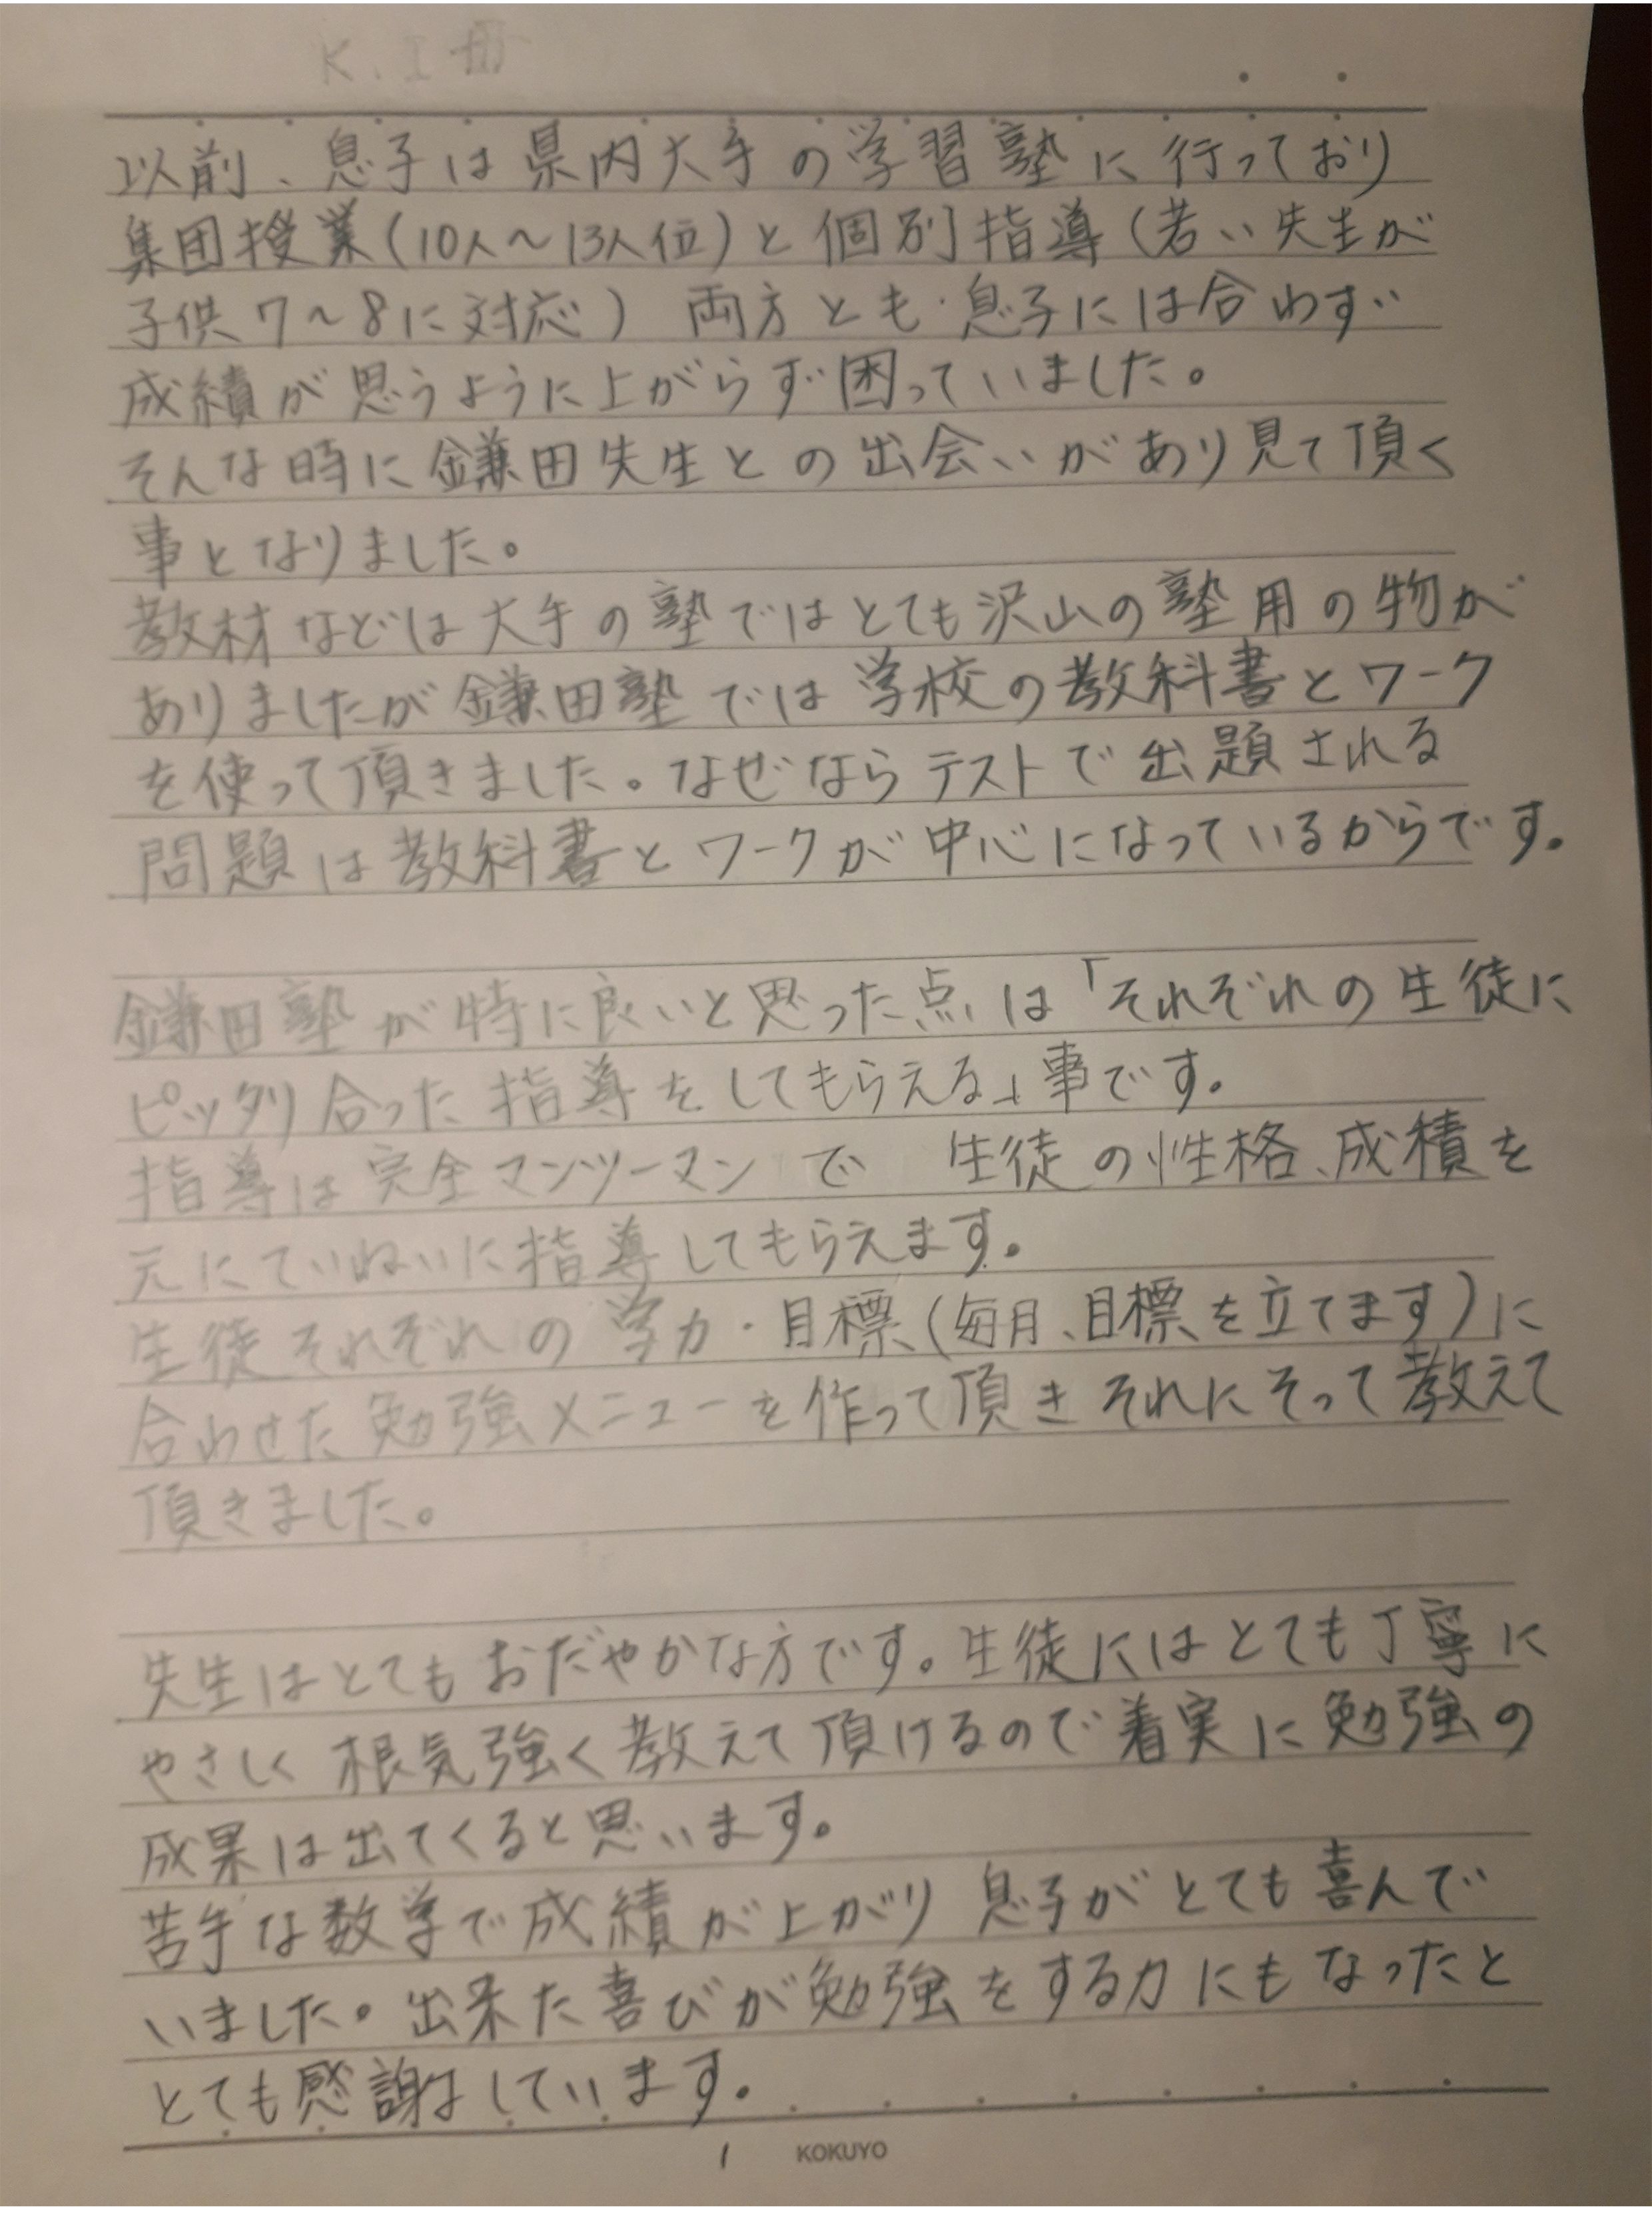 K.I 母
以前、息子は県内大手の学習塾に行っており
集団授業(10人～13人位)と個別指導(若い先生が
子供7～8に対応) 両方とも息子には合わず
成績が思うように上がらず困っていました。
そんな時に鎌田先生との出会いがあり見て頂く
事となりました。
教材などは大手の塾ではとても沢山の塾用の物が
ありましたが鎌田塾では学校の教科書とワーク
を使って頂きました。なぜならテストで出題される
問題は教科書とワークが中心になっているからです。
鎌田塾が特に良いと思った点は「それぞれの生徒に
ピッタリ合った指導をしてもらえる」事です。
指導は完全マンツーマンで 生徒の性格、成積を
元にていねいに指導してもらえます。
生徒それぞれの学力・目標(毎月、目標を立てます)に
合わせた勉強メニューを作って頂きそれにそって教えて
頂きました。
先生はとてもおだやかな方です。生徒にはとても丁寧に
やさしく根気強く教えて頂けるので着実に勉強の
成果は出てくると思います。
苦手な数学で成績が上がり息子がとても喜んで
いました。出来た喜びが勉強をする力にもなったと
とても感謝しています。
1 KOKUYO